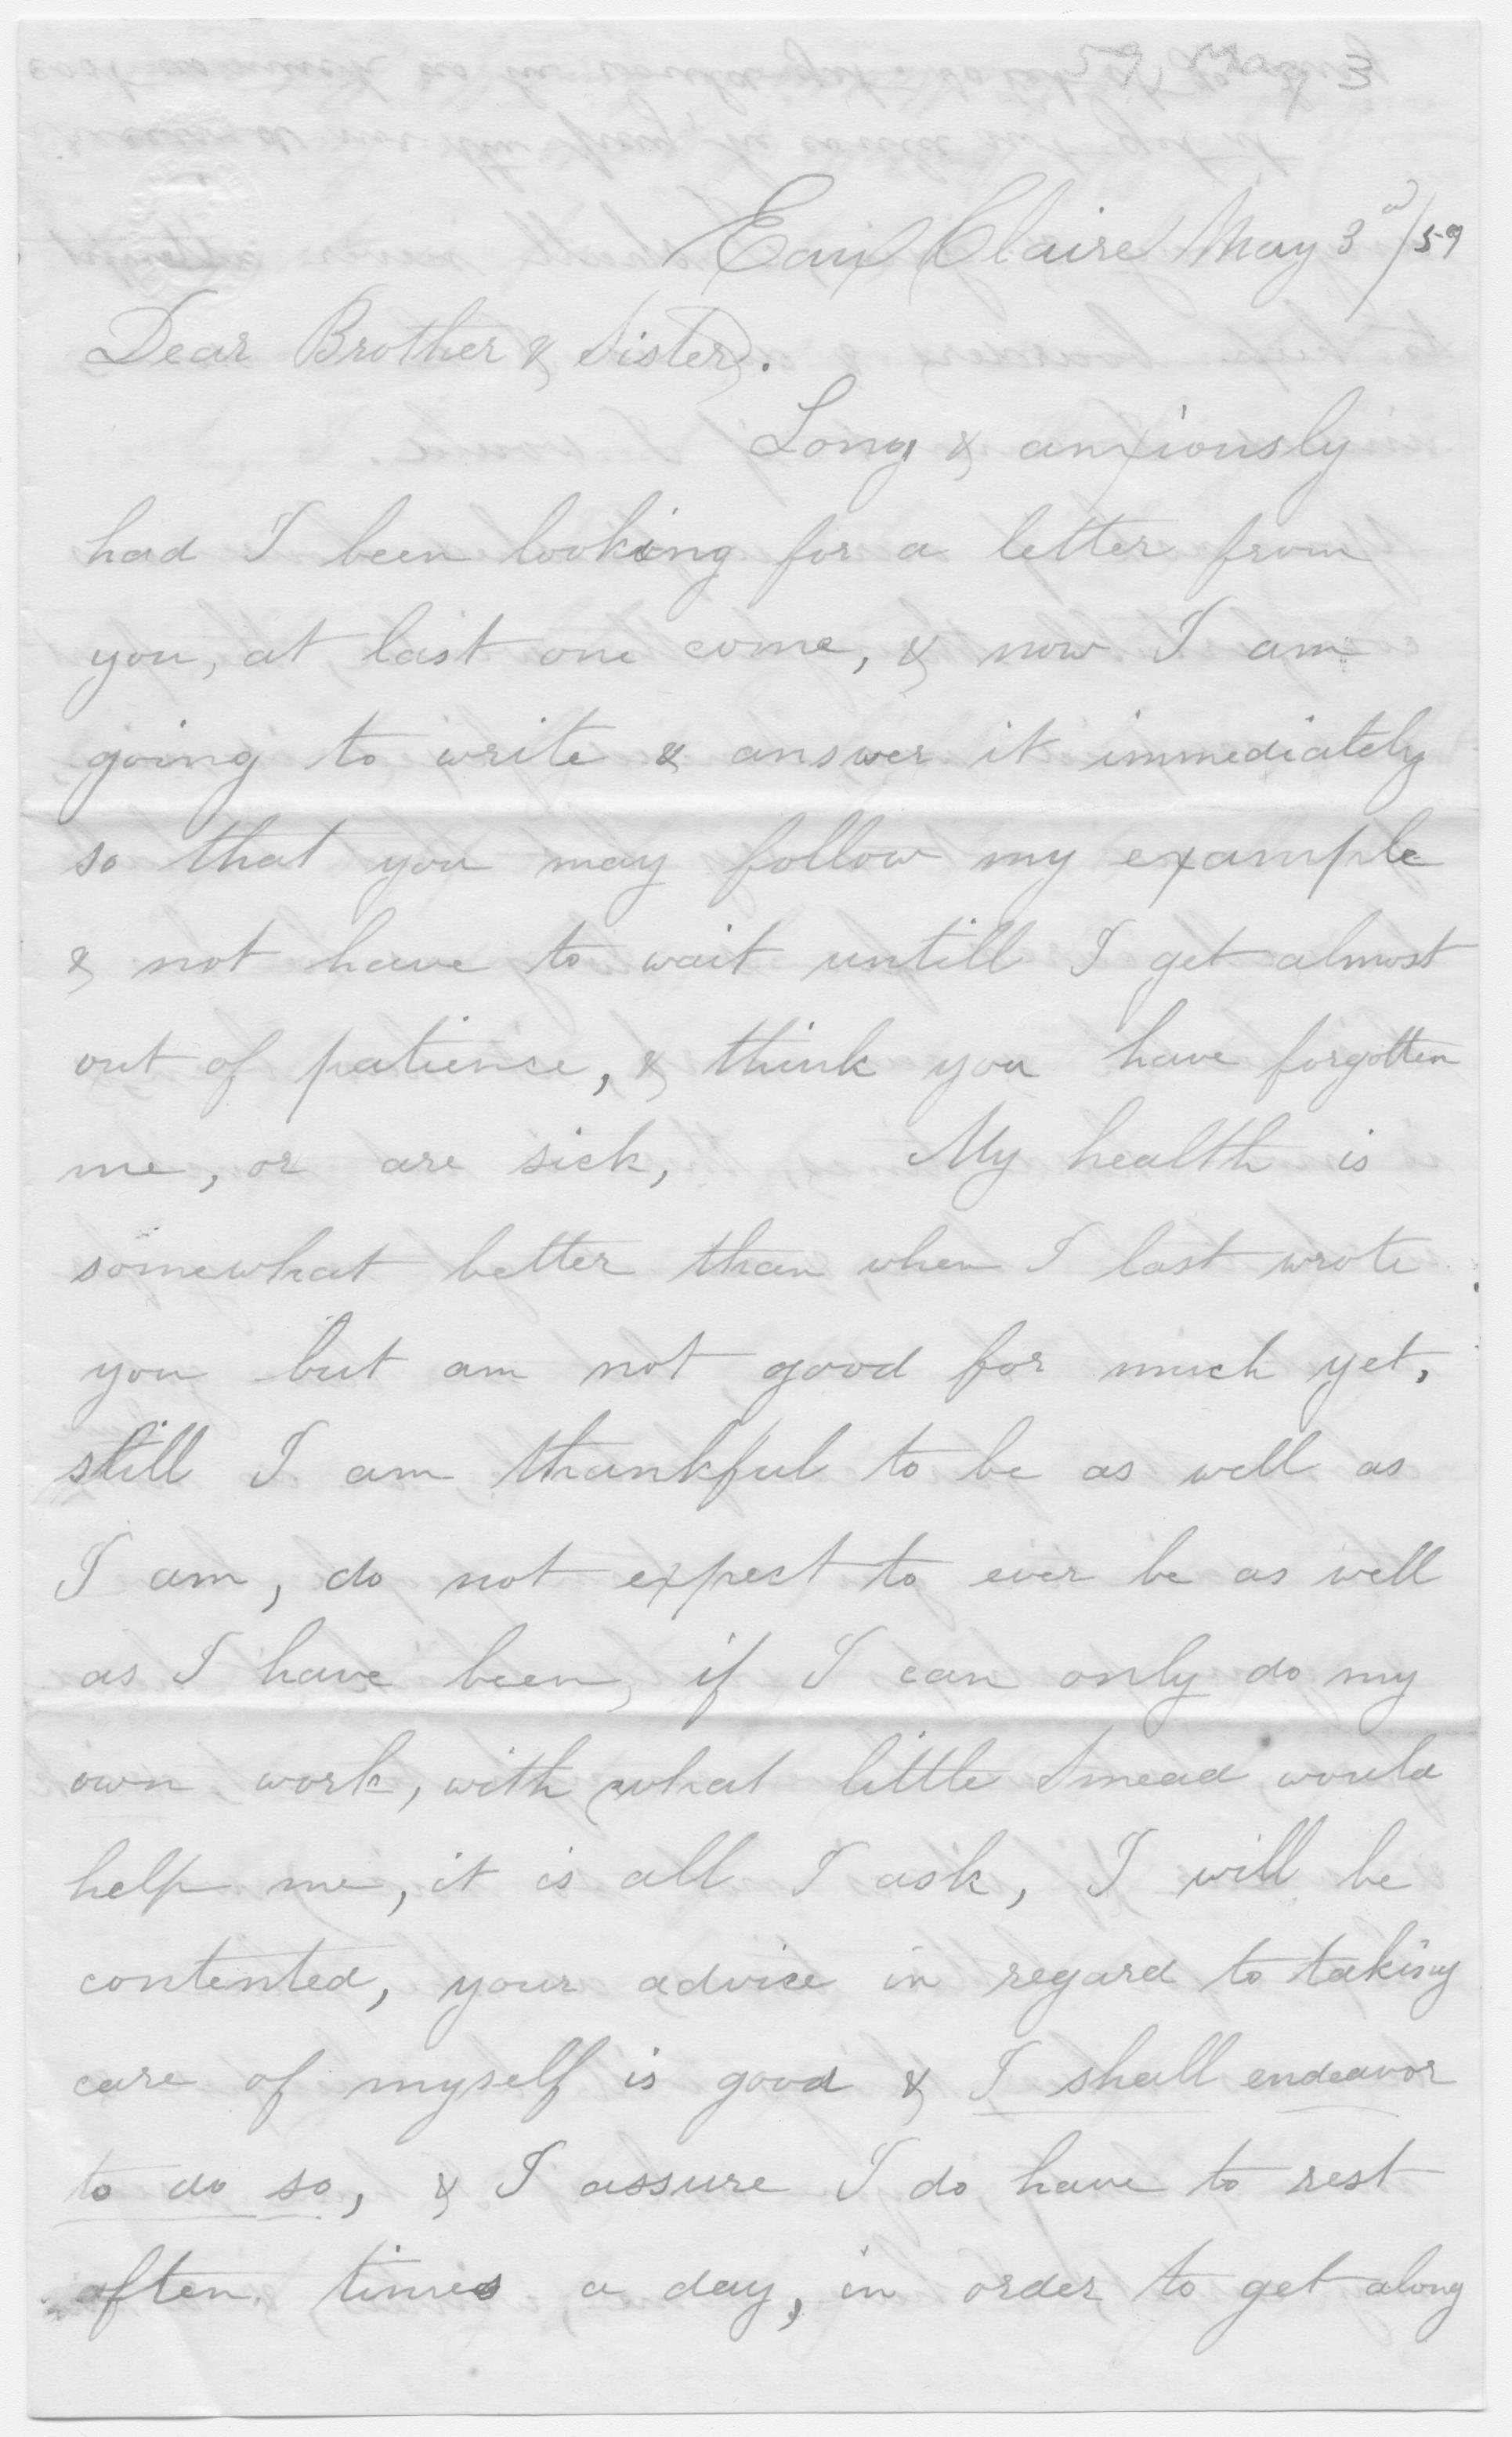 59 May 3
Eau Claire May 3d/59
Dear Brother & Sister.
Long & anxiously
had I been looking for a letter from
you, at last one come, & now I am
going to write & answer it immediately
so that you may follow my example
& not have to wait untill I get almost
out of patience, & think you have forgotten
me, or are sick, My health is
somewhat better than when I last wrote
you but am not good for much yet,
still I am thankful to be as well as
I am, do not expect to ever be as well
as I have been, if I can only do my
own work, with what little Smead would
help me, it is all I ask, I will be
contented, your advice in regard to taking
care of myself is good & I shall endeavor
to do so, & I assure I do have to rest
often times a day, in order to get along